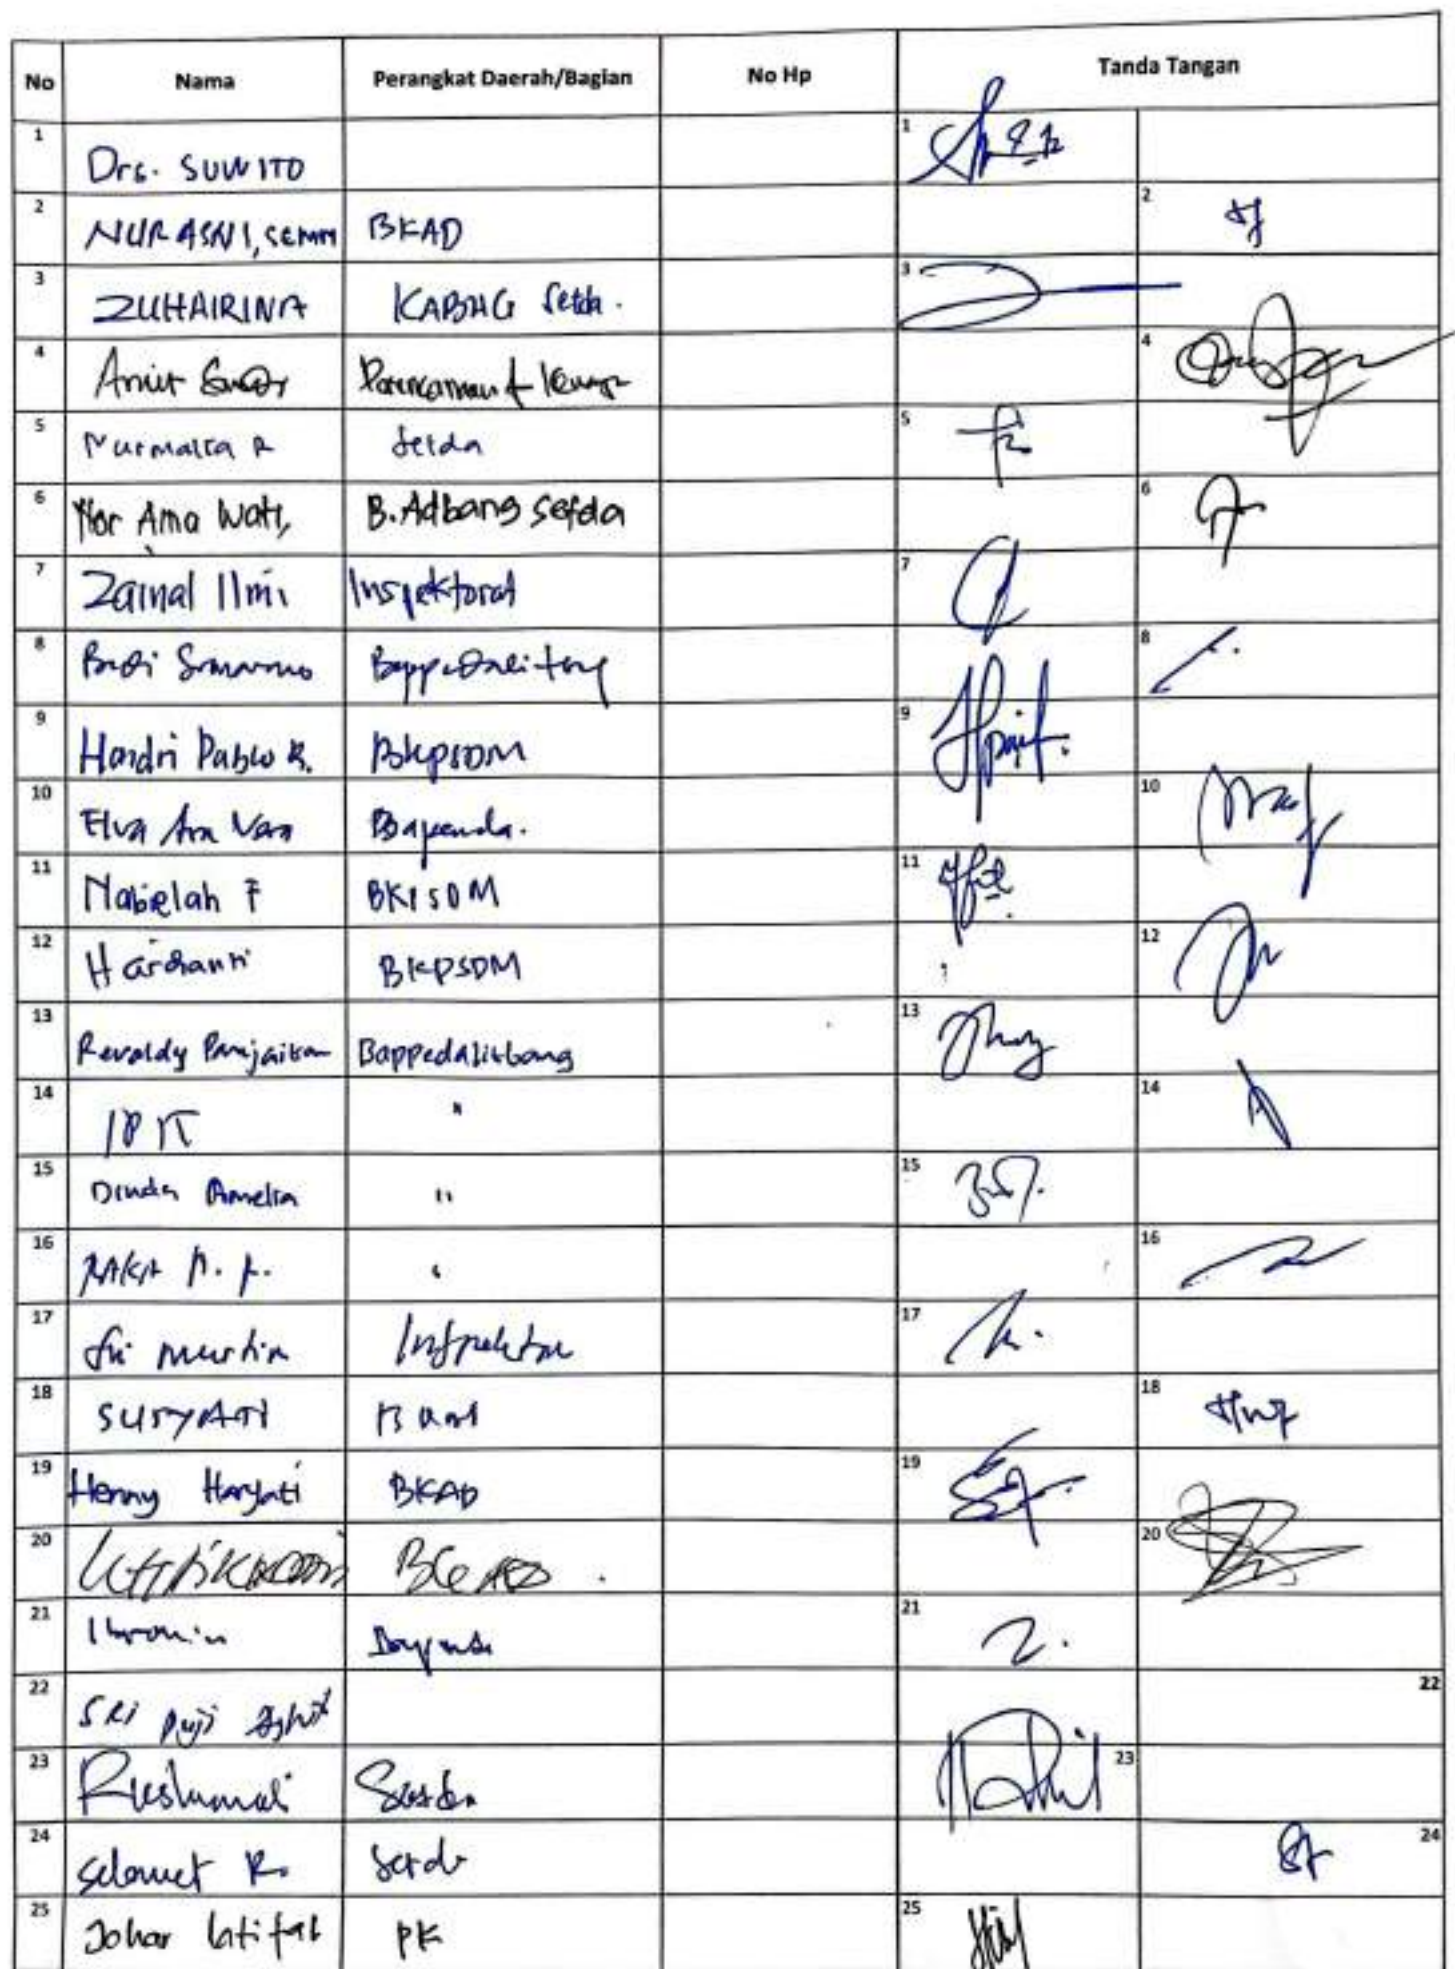 No Nama Perangkat Daerah/Bagian No Hp Tanda Tangan
1 Drs. SUWITO 1
2 NURASNI, SEMM BKAD 2
3 ZUHAIRINA KABAG Setda. 3
4 4
5 Nurmalia R Setda 5
6 Nor Ama Wati, B. Adbang Setda 6
7 Zainal Ilmi Inspektorat 7
8 Budi 8
9 Hendri Pablo R. BKPSDM 9
10 Elva Bapenda. 10
11 Nabielah F BKPSDM 11
12 Hardianti BKPSDM 12
13 Revaldy Panjaitan Bappedalitbang 13
14 " 14
15 Dinda Amelia " 15
16 RAKA " 16
17 Sri Murtin Inspektorat 17
18 SURYATI 18
19 Henny Haryati BKAD 19
20 20
21 Bapenda 21
22 SRI Puji 22
23 Setda 23
24 Selamet R. Setda 24
25 Johar latifah PK 25